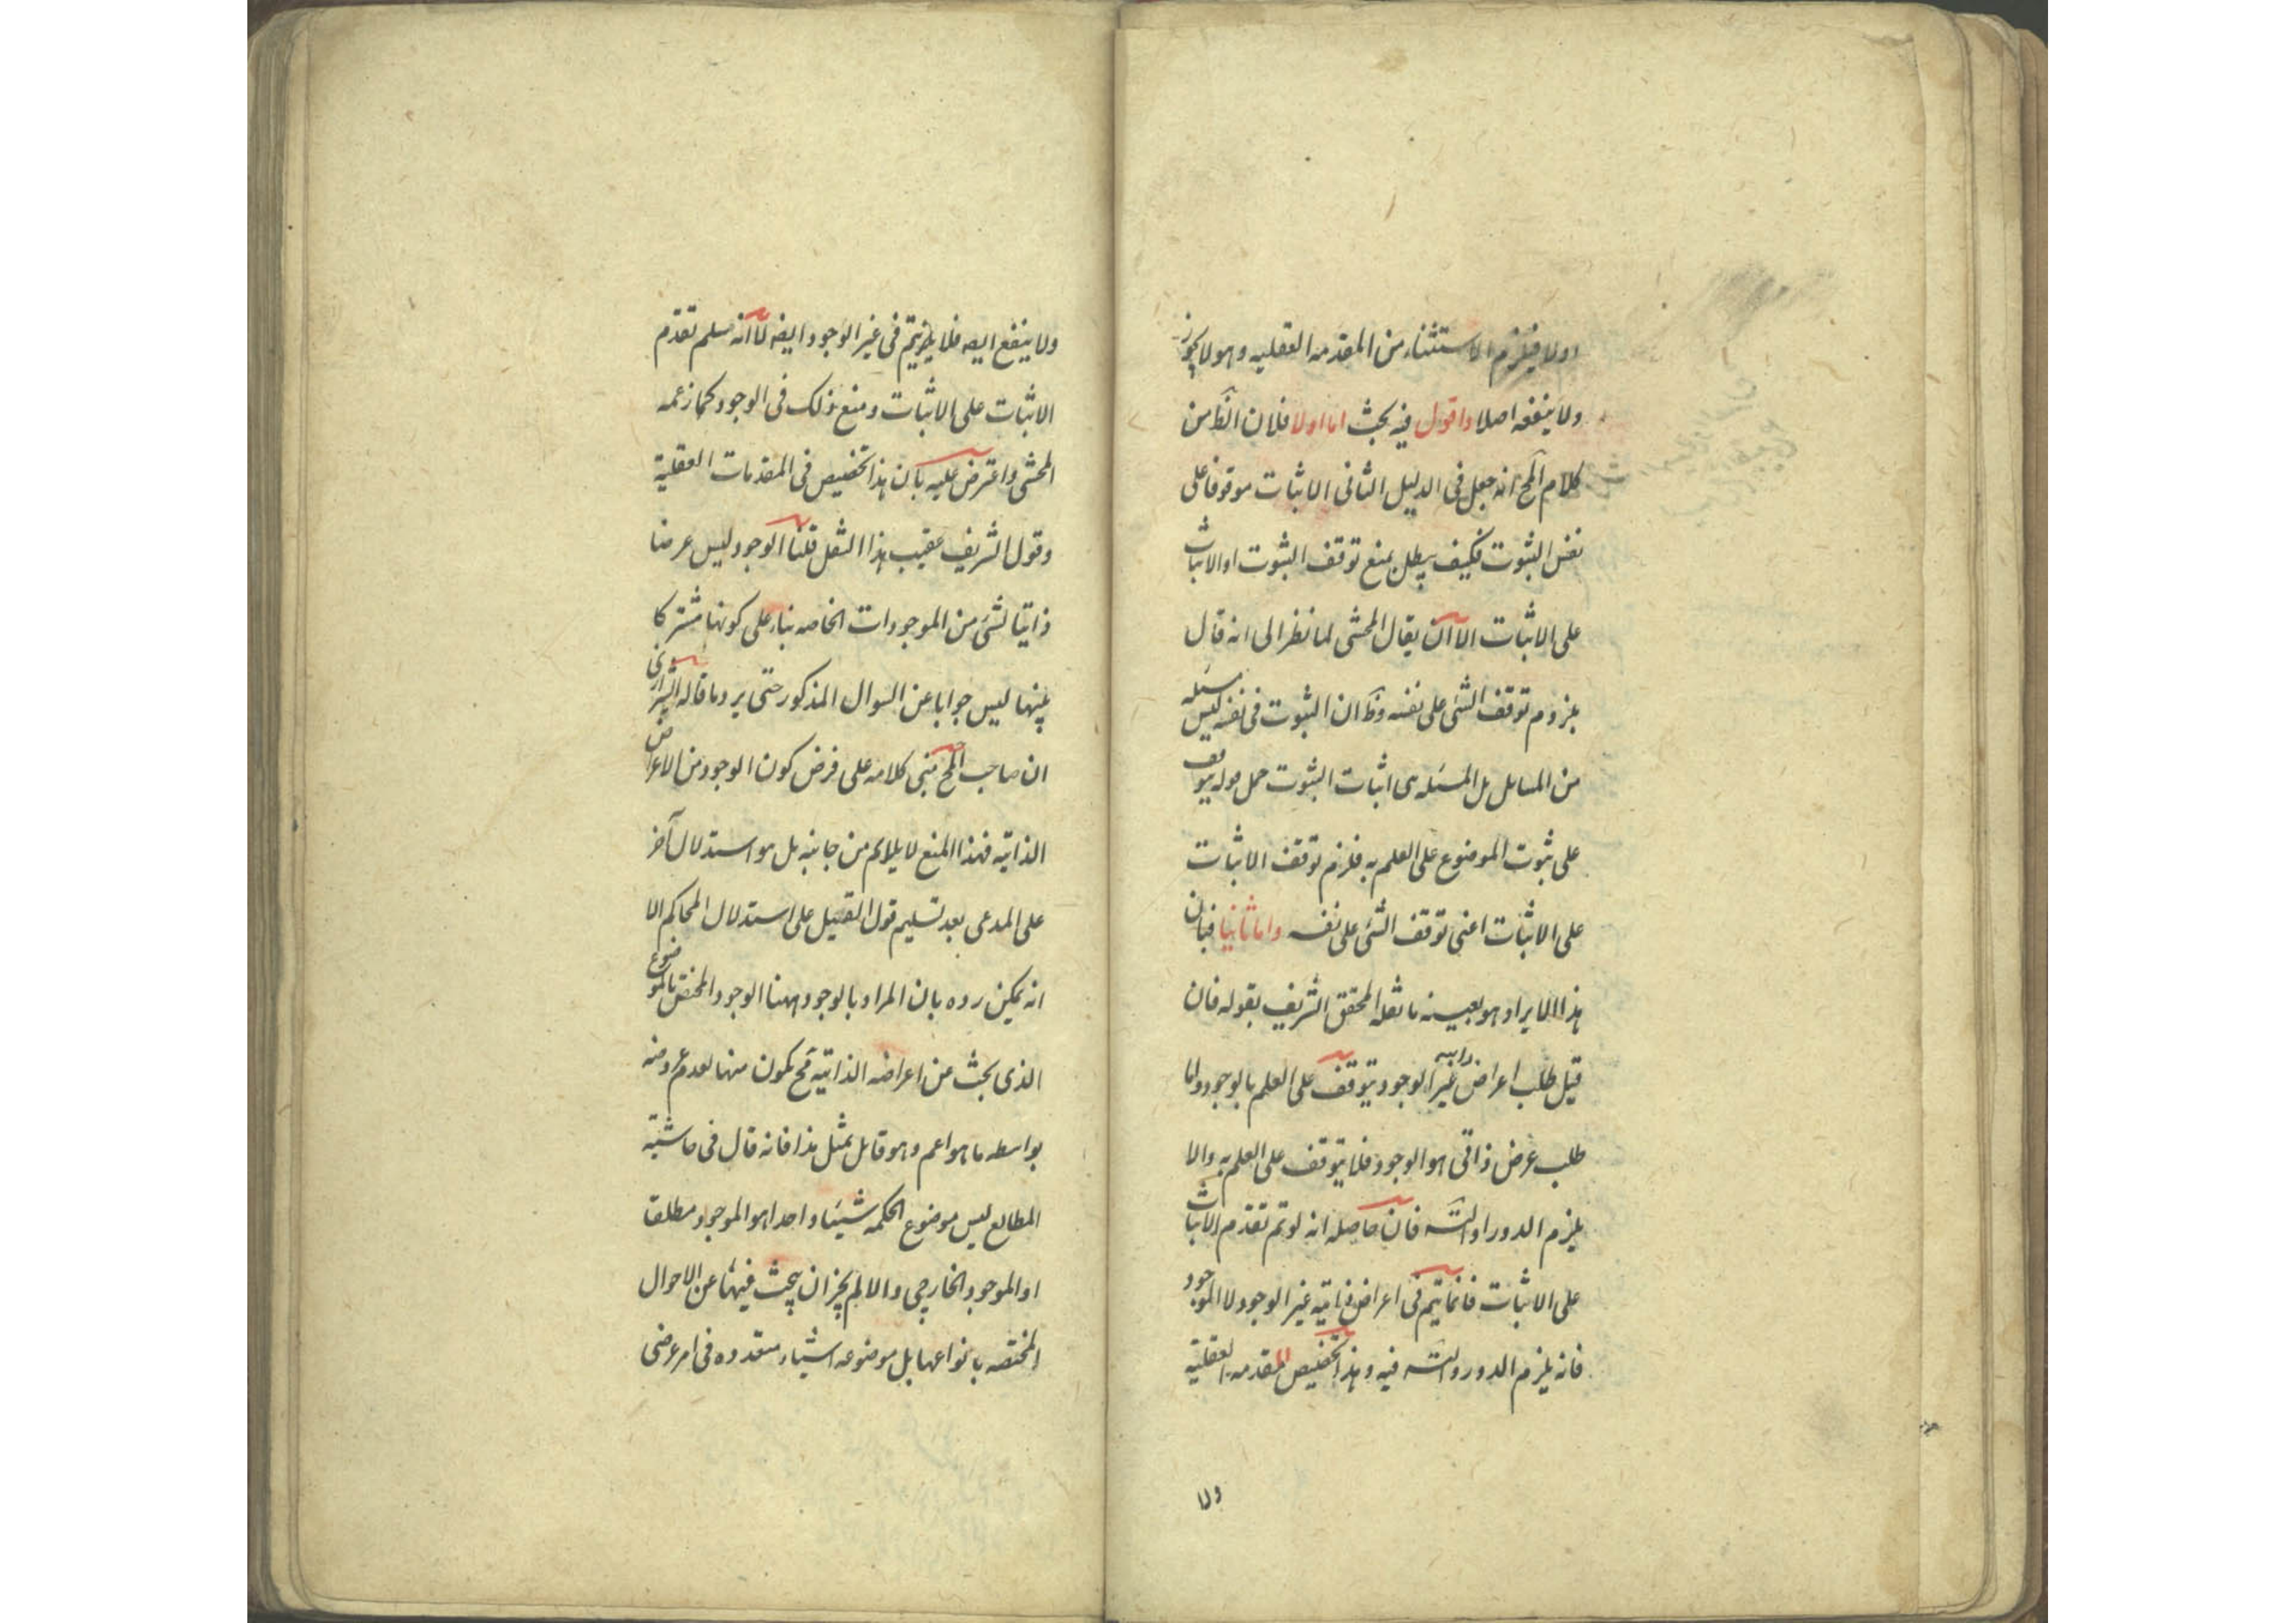 اولا فيلزم الاستثناء من المقدمه العقليه وهو لا يجوز
ولا ينفعه اصلا واقول فيه بحث اما اولا فلان الظ من
كلام المح انه جعل فى الدليل الثانى الاثبات موقوفا على
نفس الثبوت فكيف يبطل بمنع توقف الثبوت او الاثبات
على الاثبات الا ان يقال المحشى لما نظر الى انه قال
بلزوم توقف الشئ على نفسه وظ ان الثبوت فى نفسه ليس مسئله
من المسايل بل المسئله هى اثبات الثبوت حمل قوله يتوقف
على ثبوت الموضوع على العلم به فلزم توقف الاثبات
على الاثبات اعنى توقف الشئ على نفسه واما ثانيا فبان
هذا الايراد هو بعينه ما نقله المحقق الشريف بقوله فان
قيل طلب اعراض ذاتيه غير الوجود يتوقف على العلم بالوجود واما
طلب عرض ذاتى هو الوجود فلا يتوقف على العلم به والا
يلزم الدور او التسه فان حاصله انه لو تم تقدم الاثبات
على الاثبات فانما يتم فى اعراض ذاتيه غير الوجود لا الوجود
فانه يلزم الدور والتسه فيه وهذا تخصيص للمقدمه العقلية
ولا
ولا ينفع ايضه فلا يتم فى غير الوجود ايضه لما انه مسلم تقدم
الاثبات على الاثبات ومنع ذلك فى الوجود كما زعمه
المحشى واعترض عليه بان هذا تخصيص فى المقدمات العقلية
وقول الشريف عقيب هذا النقل قلنا الوجود ليس عرضا
ذاتيا لشئ من الموجودات الخاصه بناء على كونها مشتركا
بينها ليس جوابا عن السوال المذكور حتى يرد ما قاله الشيرازى
ان صاحب المح مبنى كلامه على فرض كون الوجود من الاعراض
الذاتيه فهذا المنع لا يلايم من جانبه بل هو استدلال آخر
على المدعى بعد تسليم قول القيل على استدلال المحاكم الا
انه يمكن رده بان المراد بالوجود ههنا الوجود المختص بالموضوع
الذى بحث عن اعراضه الذاتيه فح يكون منها لعدم عروضه
بواسطه ما هو اعم وهو قابل بمثل هذا فانه قال فى حاشية
المطالع ليس موضوع الحكمه شيئا واحدا هو الموجود مطلقا
او الموجود الخارجى والا لم يجز ان يبحث فيها عن الاحوال
المختصه بانواعها بل موضوعه اشياء متعدده فى امر عرضى